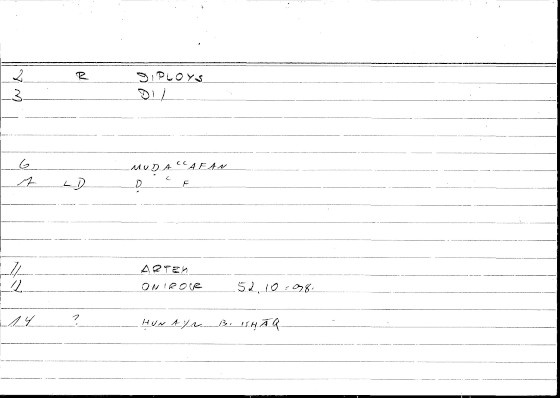 2 R DIPLOYS
3 DI/
6 MUḌAᶜᶜAFAN
7 LD Ḍ ᶜ F
11 ARTEM
12 ONIROCR 52,10-98.
14 ? HUNAYN B. ISHĀQ